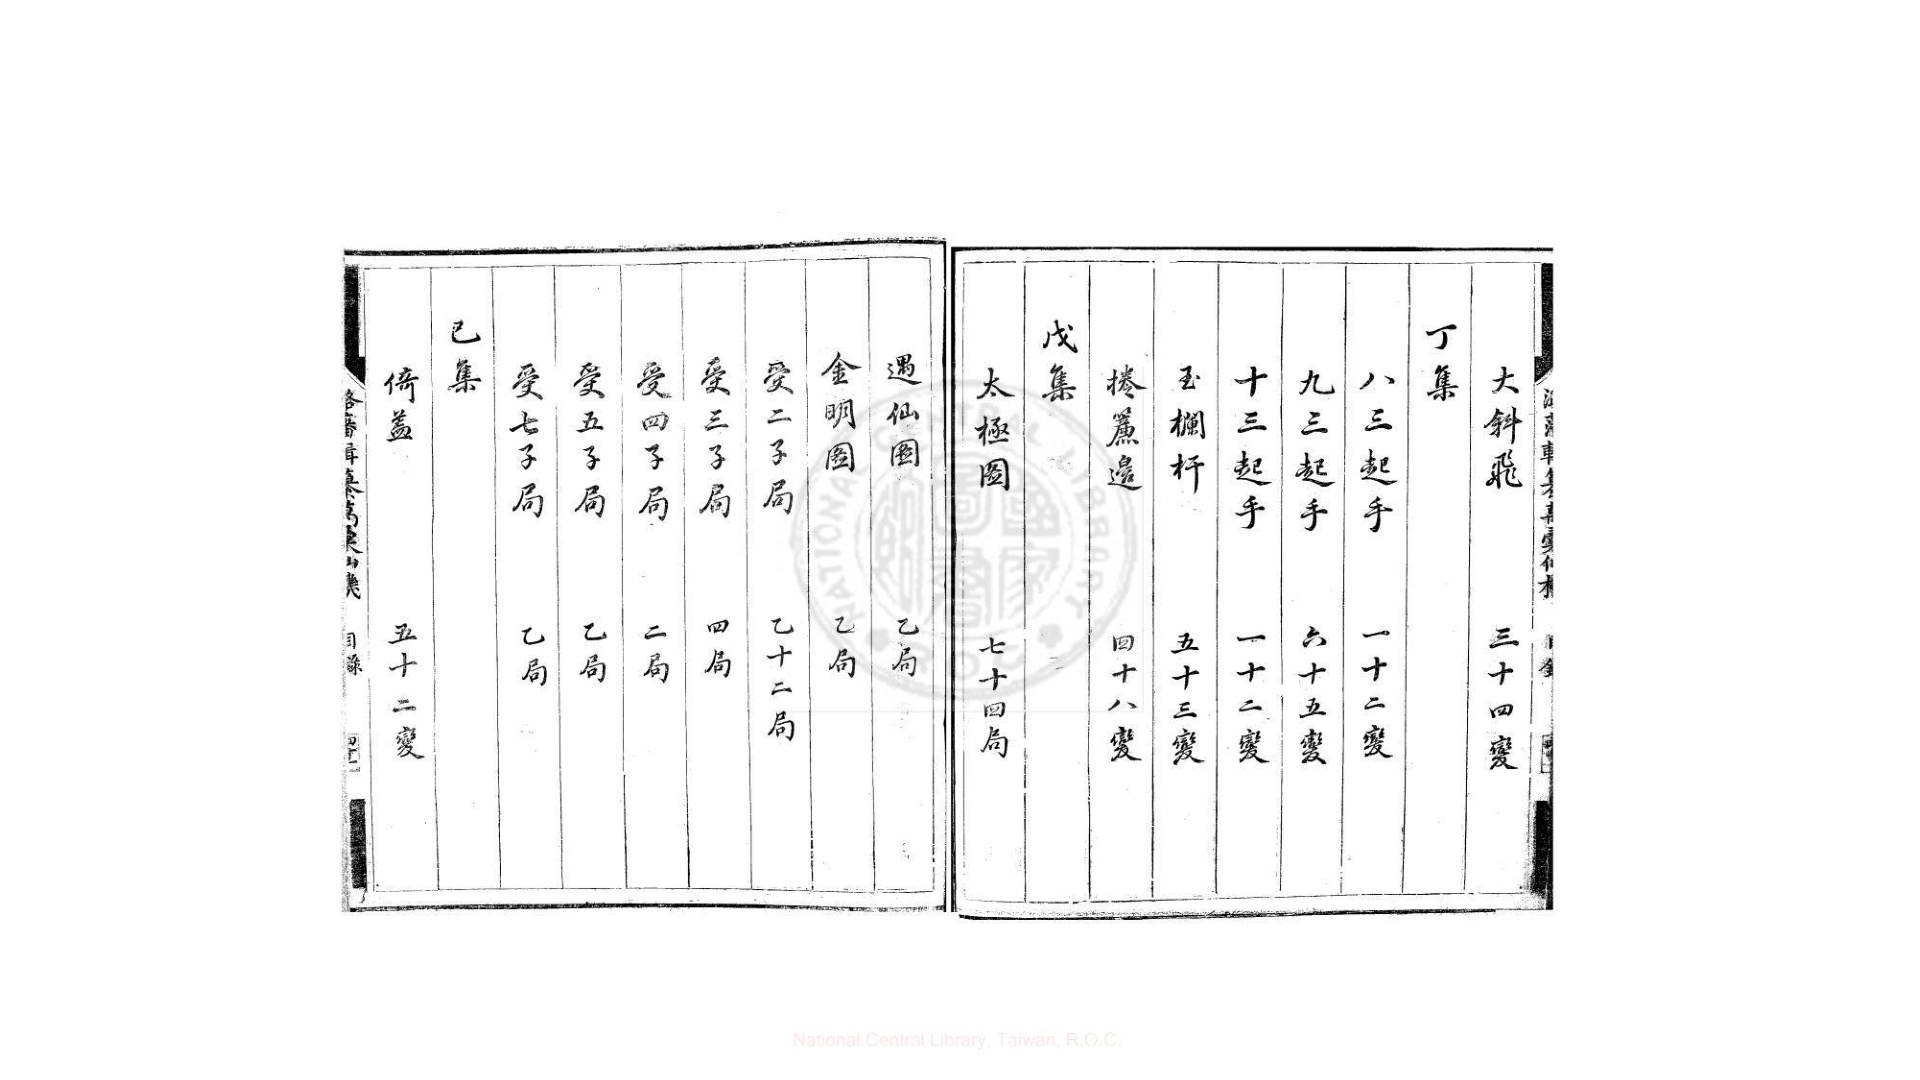 大斜飛 三十四變
丁集
八三起手 一十二變
九三起手 六十五變
十三起手 一十二變
玉欄杆 五十三變
捲簾邊 四十八變
戊集
太極圖 七十四局
遇仙圖 乙局
金明圖 乙局
受二子局 乙十二局
受三子局 四局
受四子局 二局
受五子局 乙局
受七子局 乙局
己集
倚盖 五十二變
目錄
National Central Library, Taiwan, R.O.C.